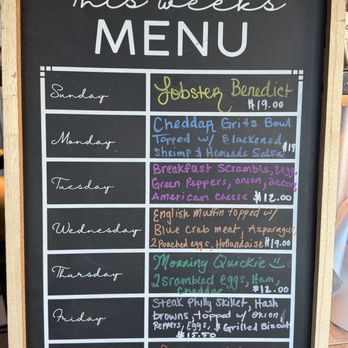 This weeks
MENU
Sunday
Lobster Benedict
$19.00
Monday
Cheddar Grits Bowl
Topped w/ Blackened
Shrimp & Homeade Salsa
$19
Tuesday
Breakfast Scramble, 2 egg,
Green Peppers, onion, Bacon,
American cheese $12.00
Wednesday
English Muffin topped w/
Blue crab meat, Asparagus,
2 Poached eggs, Hollandaise $19.00
Thursday
Morning Quickie
2 scrambled eggs, Ham,
Cheddar $12.00
Friday
Steak Philly Skillet, Hash
browns, topped w/ onion,
Peppers, Eggs, & Grilled Biscuit
$15.50